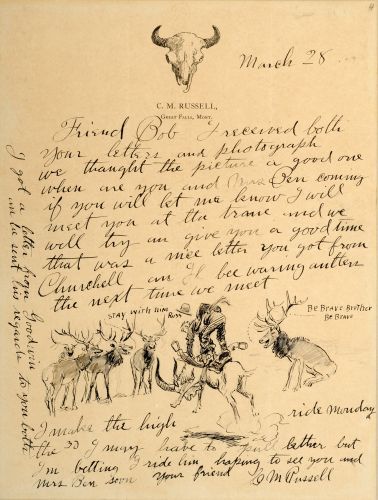 March 28
C. M. RUSSELL,
GREAT FALLS, MONT.
Friend Bob I received both
your letters and photograph
we thaught the picture a good one
when are you and Mrs Ben coming
if you will let me know I will
meet you at the trane and we
will try an give you a good time
that was a nice letter you got from
Churchell an Il bee waring antlers
the next time we meet
STAY WITH HIM
Russ
BE BRAVE BROTHER
BE BRAVE
I make the high ride Monday
the 33 I may have to leather but
Im betting I ride him hoping to see you and
Mrs Ben soon your friend C M Russell
I got a letter from Goodwin
an he sent his regards to you both